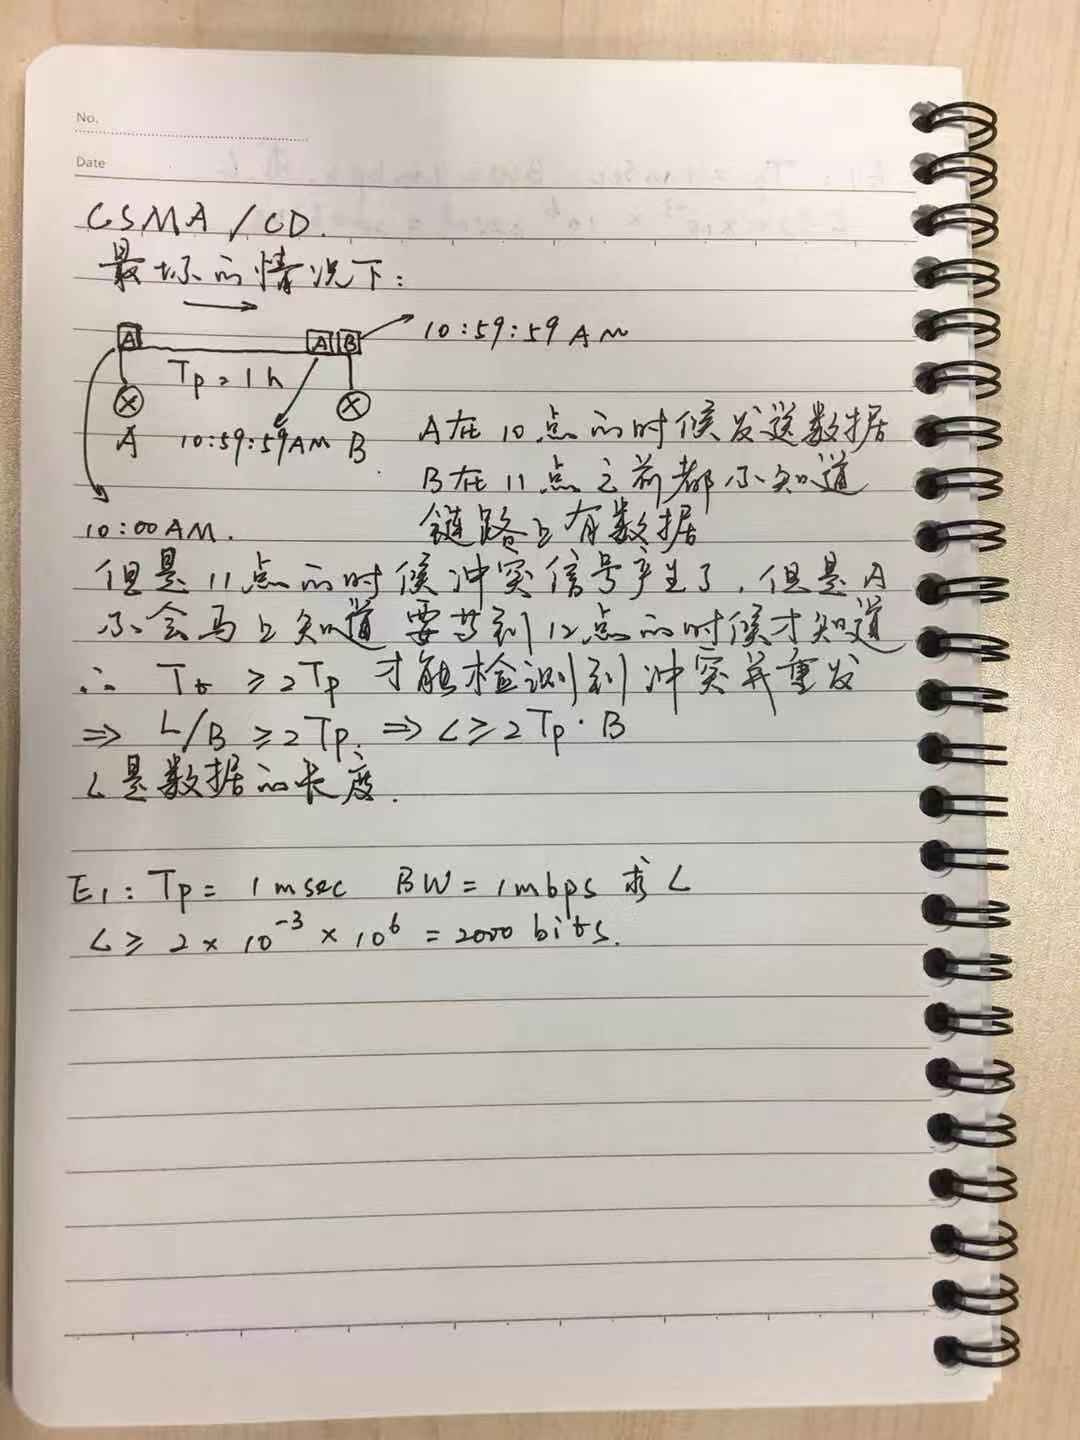 No.
Date
CSMA/CD.
最坏的情况下:
A
A B
10:59:59 AM
Tp = 1h
A
10:59:59AM
B
10:00AM.
A在10点的时候发送数据
B在11点之前都不知道
链路上有数据
但是11点的时候冲突信号产生了,但是A
不会马上知道 要等到12点的时候才知道
∴ Tt ≥ 2Tp 才能检测到冲突并重发
⇒ L/B ≥ 2Tp. ⇒ L ≥ 2Tp · B
L是数据的长度.
E1: Tp = 1msec BW = 1mbps 求L
L ≥ 2 × 10⁻³ × 10⁶ = 2000 bits.